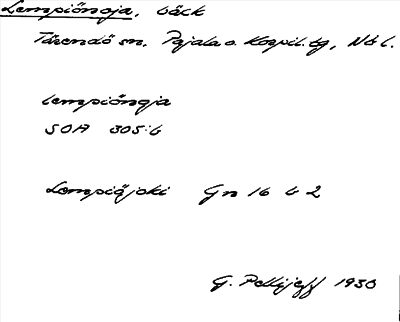 Lempiönoja, bäck
Tärendö sn, Pajala o. Korpil. tg, Nb l.
lempiönoja
SOA 305:6
Lempiöjoki Gn 16 b 2
G. Pellijeff 1930